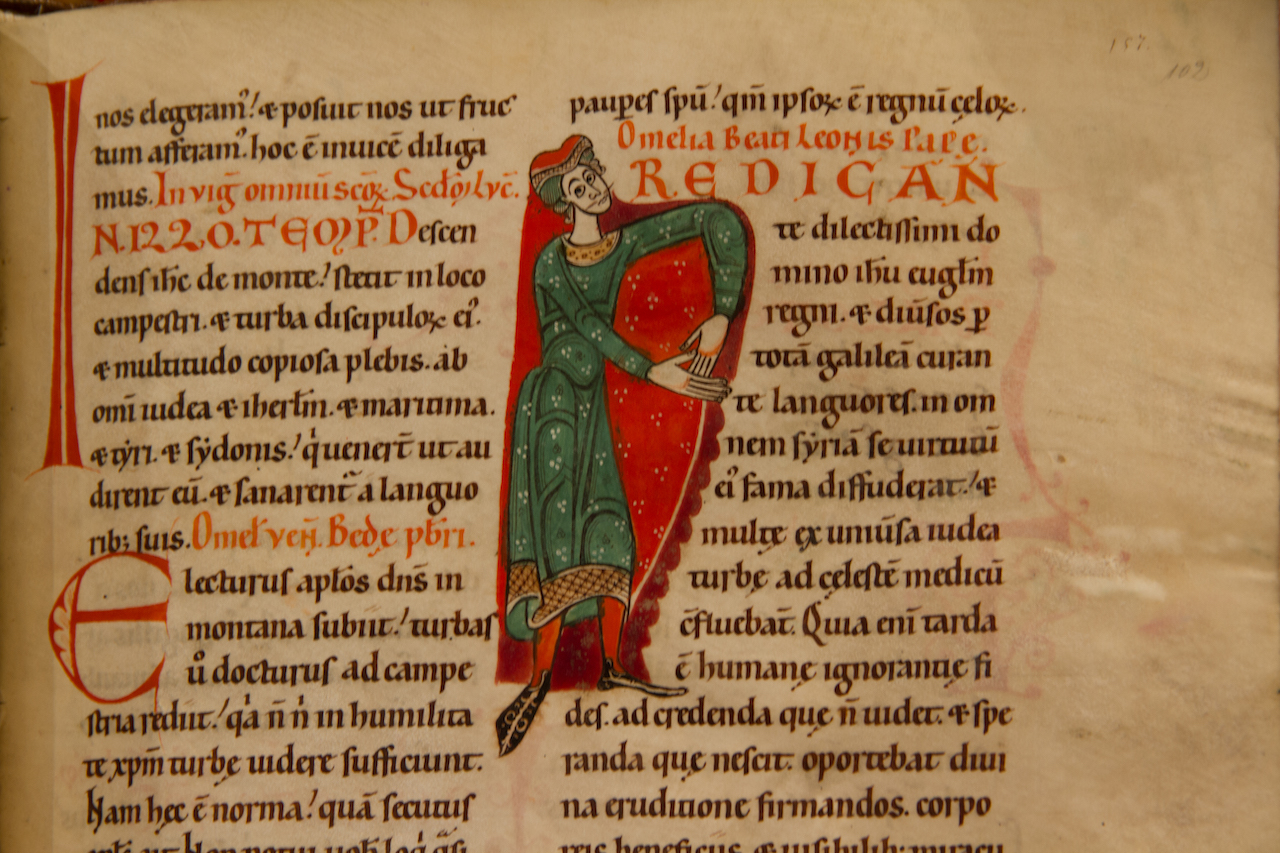 157.
102
nos elegeram᷒! & posuit nos ut fruc
tum afferam᷒. hoc ē inuicē diliga
mus. In vig̃ omniū scōꝝ. Scd̃m Lvc̄.
IN. ILLO. TEMP̄. Descen
dens ihc̄ de monte! stetit in loco
campestri. & turba discipuloꝝ ei᷒.
& multitudo copiosa plebis. ab
omī iudea & iherłm. & maritima.
& tẏri. & sẏdonis! q̍ uenert̄ ut au
dirent eū. & sanarent᷒ a languo
rib; suis. Omeł ven̄. Bedę pb̄ri.
Electurus apłos dn̄s in
montana subiit! turbas
ů docturus ad campe
stria rediit! q̍a n̄ n̍ in humilita
te xp̄m turbę uidere sufficiunt.
Nam hęc ē norma! quā secutus
paupes spū! qm̄ ipsoꝝ ē regnū cęloꝝ.
Omelia Beati Leonis Papę.
PREDICAN
te dilectissimi do
mino ihū euglm̄
regni. & diūsos ꝑ
totā galileā curan
te languores. in om
nem sẏriā se uirtutū
ei᷒ fama diffuderat! &
multę ex uniūsa iudea
turbę ad cęlestē medicū
c̄fluebat̄. Quia eni᷒ tarda
ē humanę ignorantię fi
des. ad credenda quę n̄ uidet. & spe
randa quę nescit. oportebat diui
na eruditione firmandos. corpo
reis beneficiis. & uisibilib; miracu